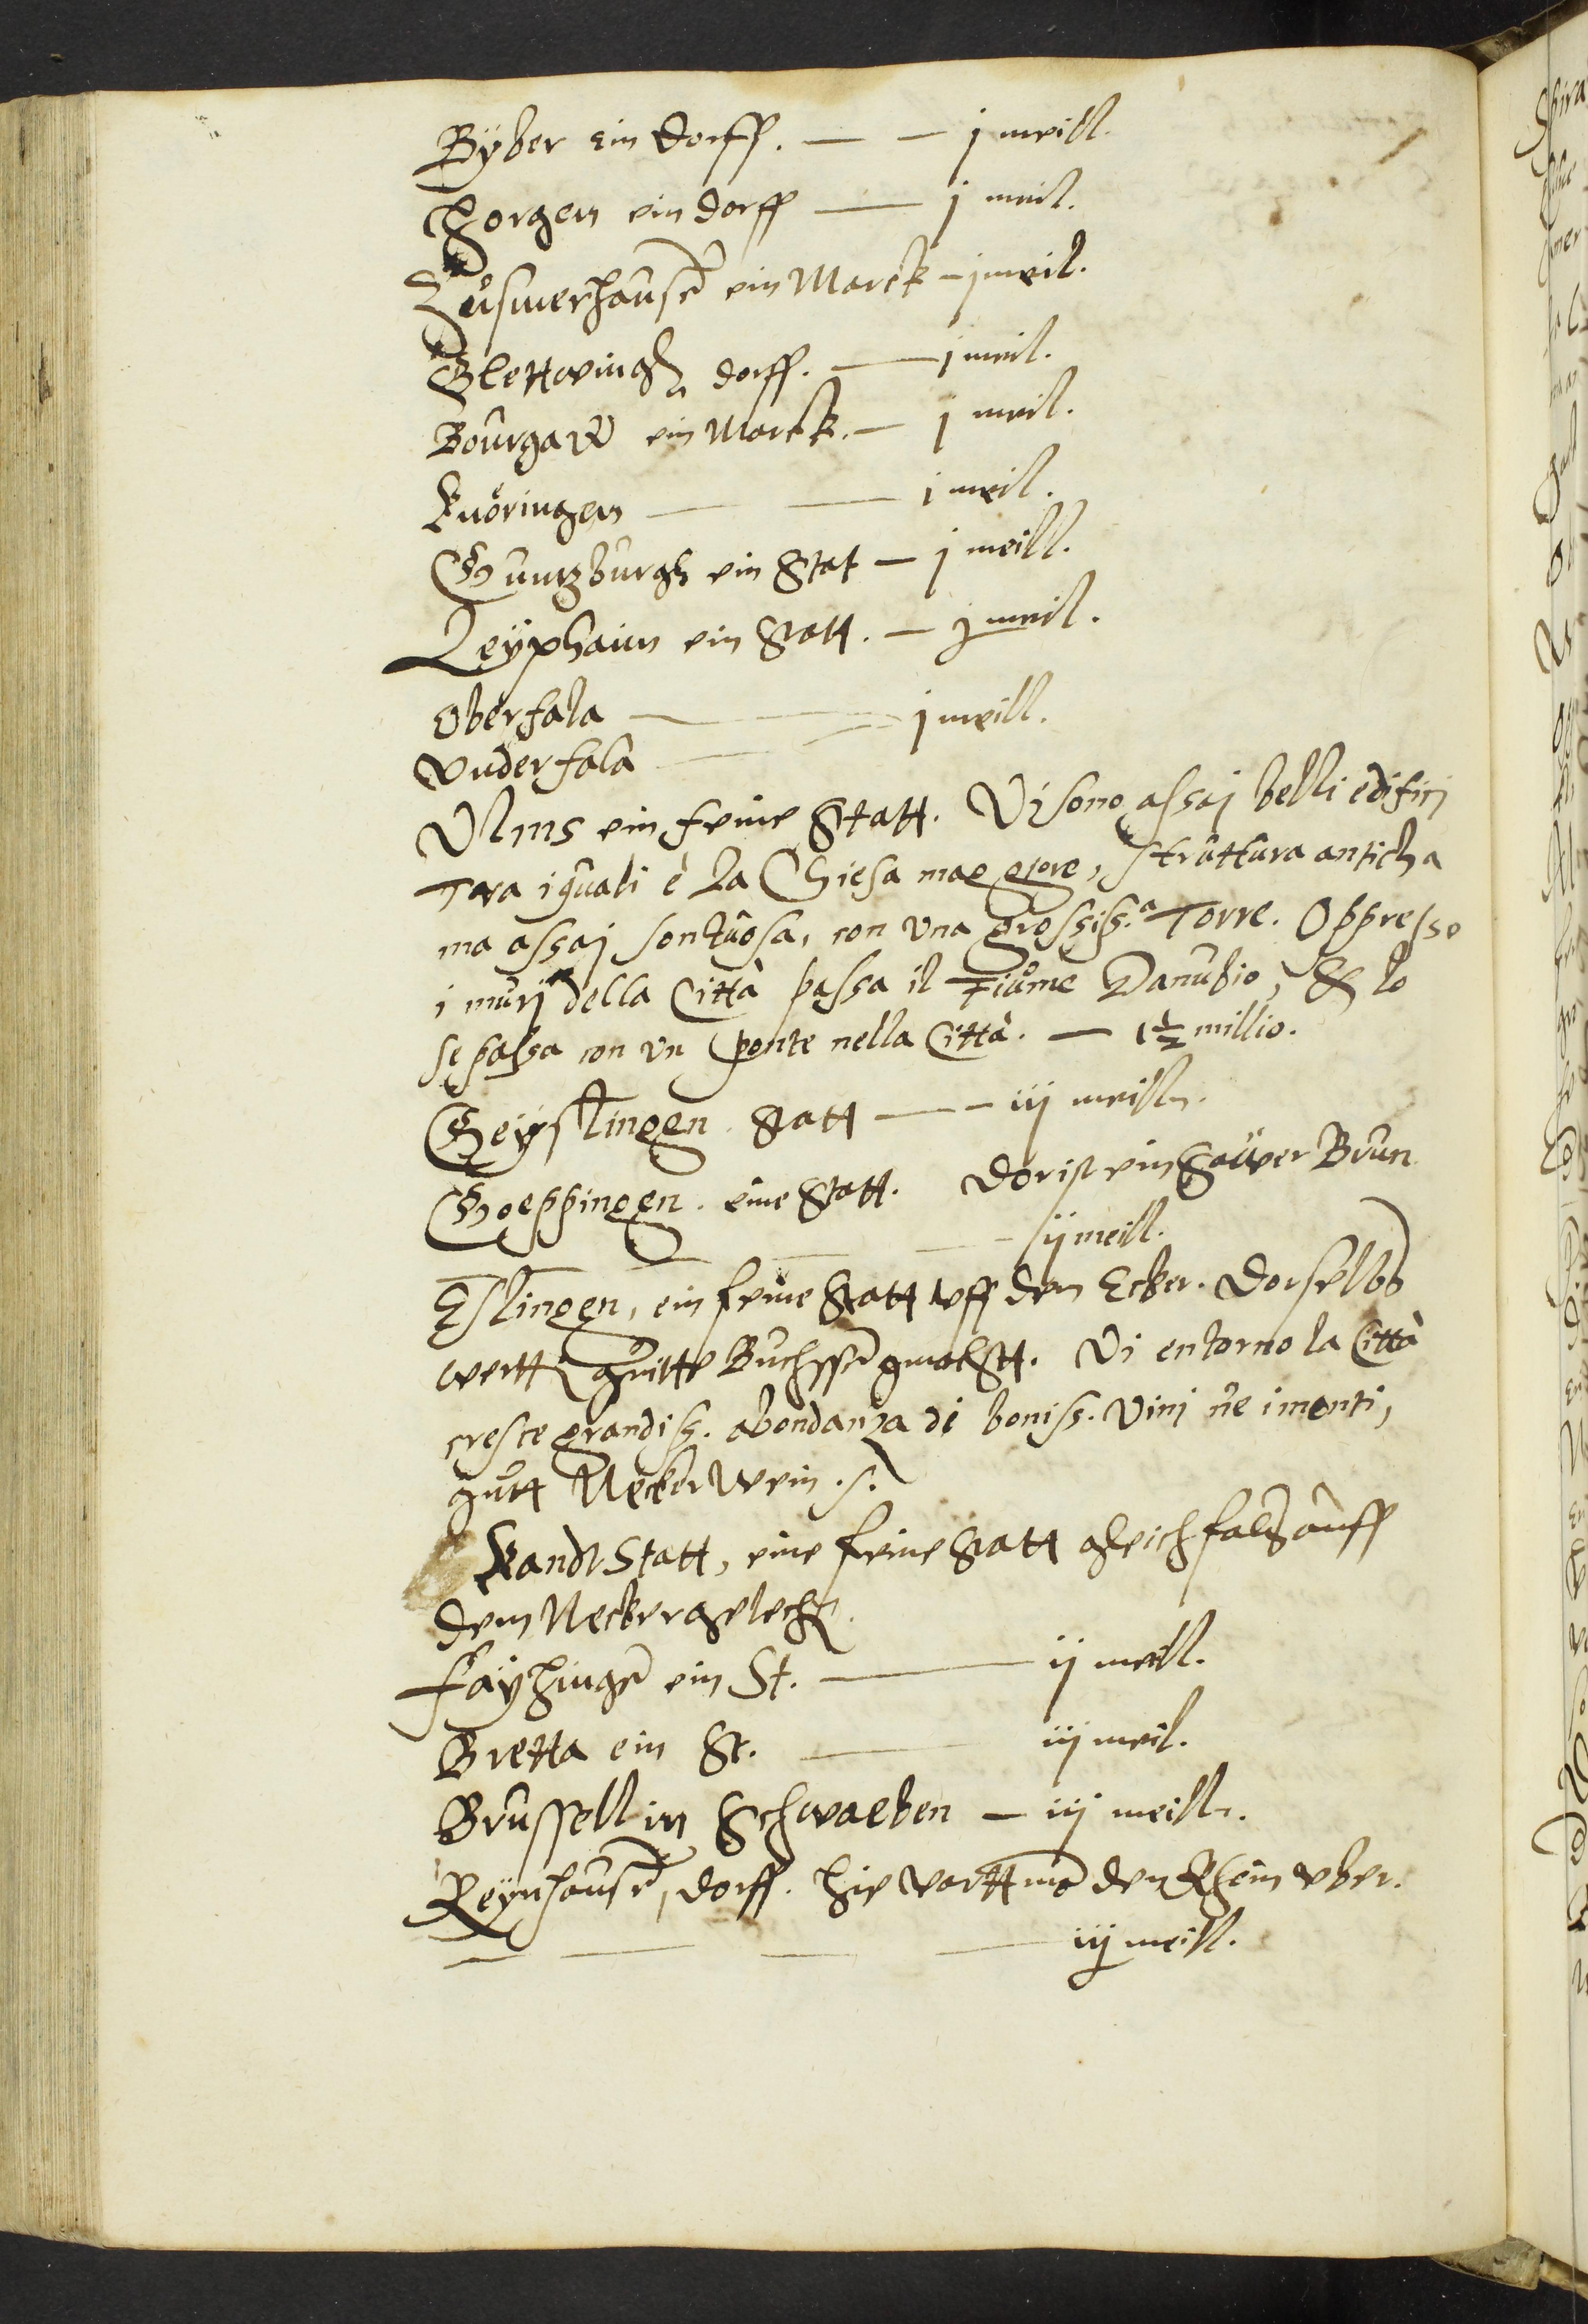 Byber ein dorff. — — j meill.
Horgen ein dorff — j meil.
Zusmerhausen ein Marck — j meil.
Glettwingh dorff. — j meil.
Bourgaw ein Marck. — j meil.
Knöringen — — j meil.
Guntzburgh ein Stat — j meill.
Leyphaim ein Statt. — j meil.
Oberfala — — j meill.
Vnderfala
Vlms ein feine Statt. Vi sono assaj belli edificij
Tra i quali è la Chiesa maggiore, struttura anticha
ma assaj sontuosa, con vna grossiss.a Torre. Oppresso
i murj della Città passa il Fiume Danubio, & lo
se passa con vn ponte nella Città. — 1½ millio.
Geyslingen Statt — — iij meill.
Goeppingen. eine Statt. Dorist ein Sauwer Brun
— — ij meill.
Eslingen, ein feine Statt vff den Ecker. Dorselbs
wertt gutte Buchssen gmachtt. Vi entorno la Città
cresce grandiss. abondanza di boniss. Vinj ne i monti,
gutt Necker Wein.
KandtStatt, eine feine Statt gleichfals auff
dem Necker gelech.
Fayhingen ein St. — ij meill.
Bretta ein St. — iij meil.
Brussell in Schwaeben — iij meill.
Reynhausen, dorff. hie fartt man den Rhein vber.
— — — iij meill.